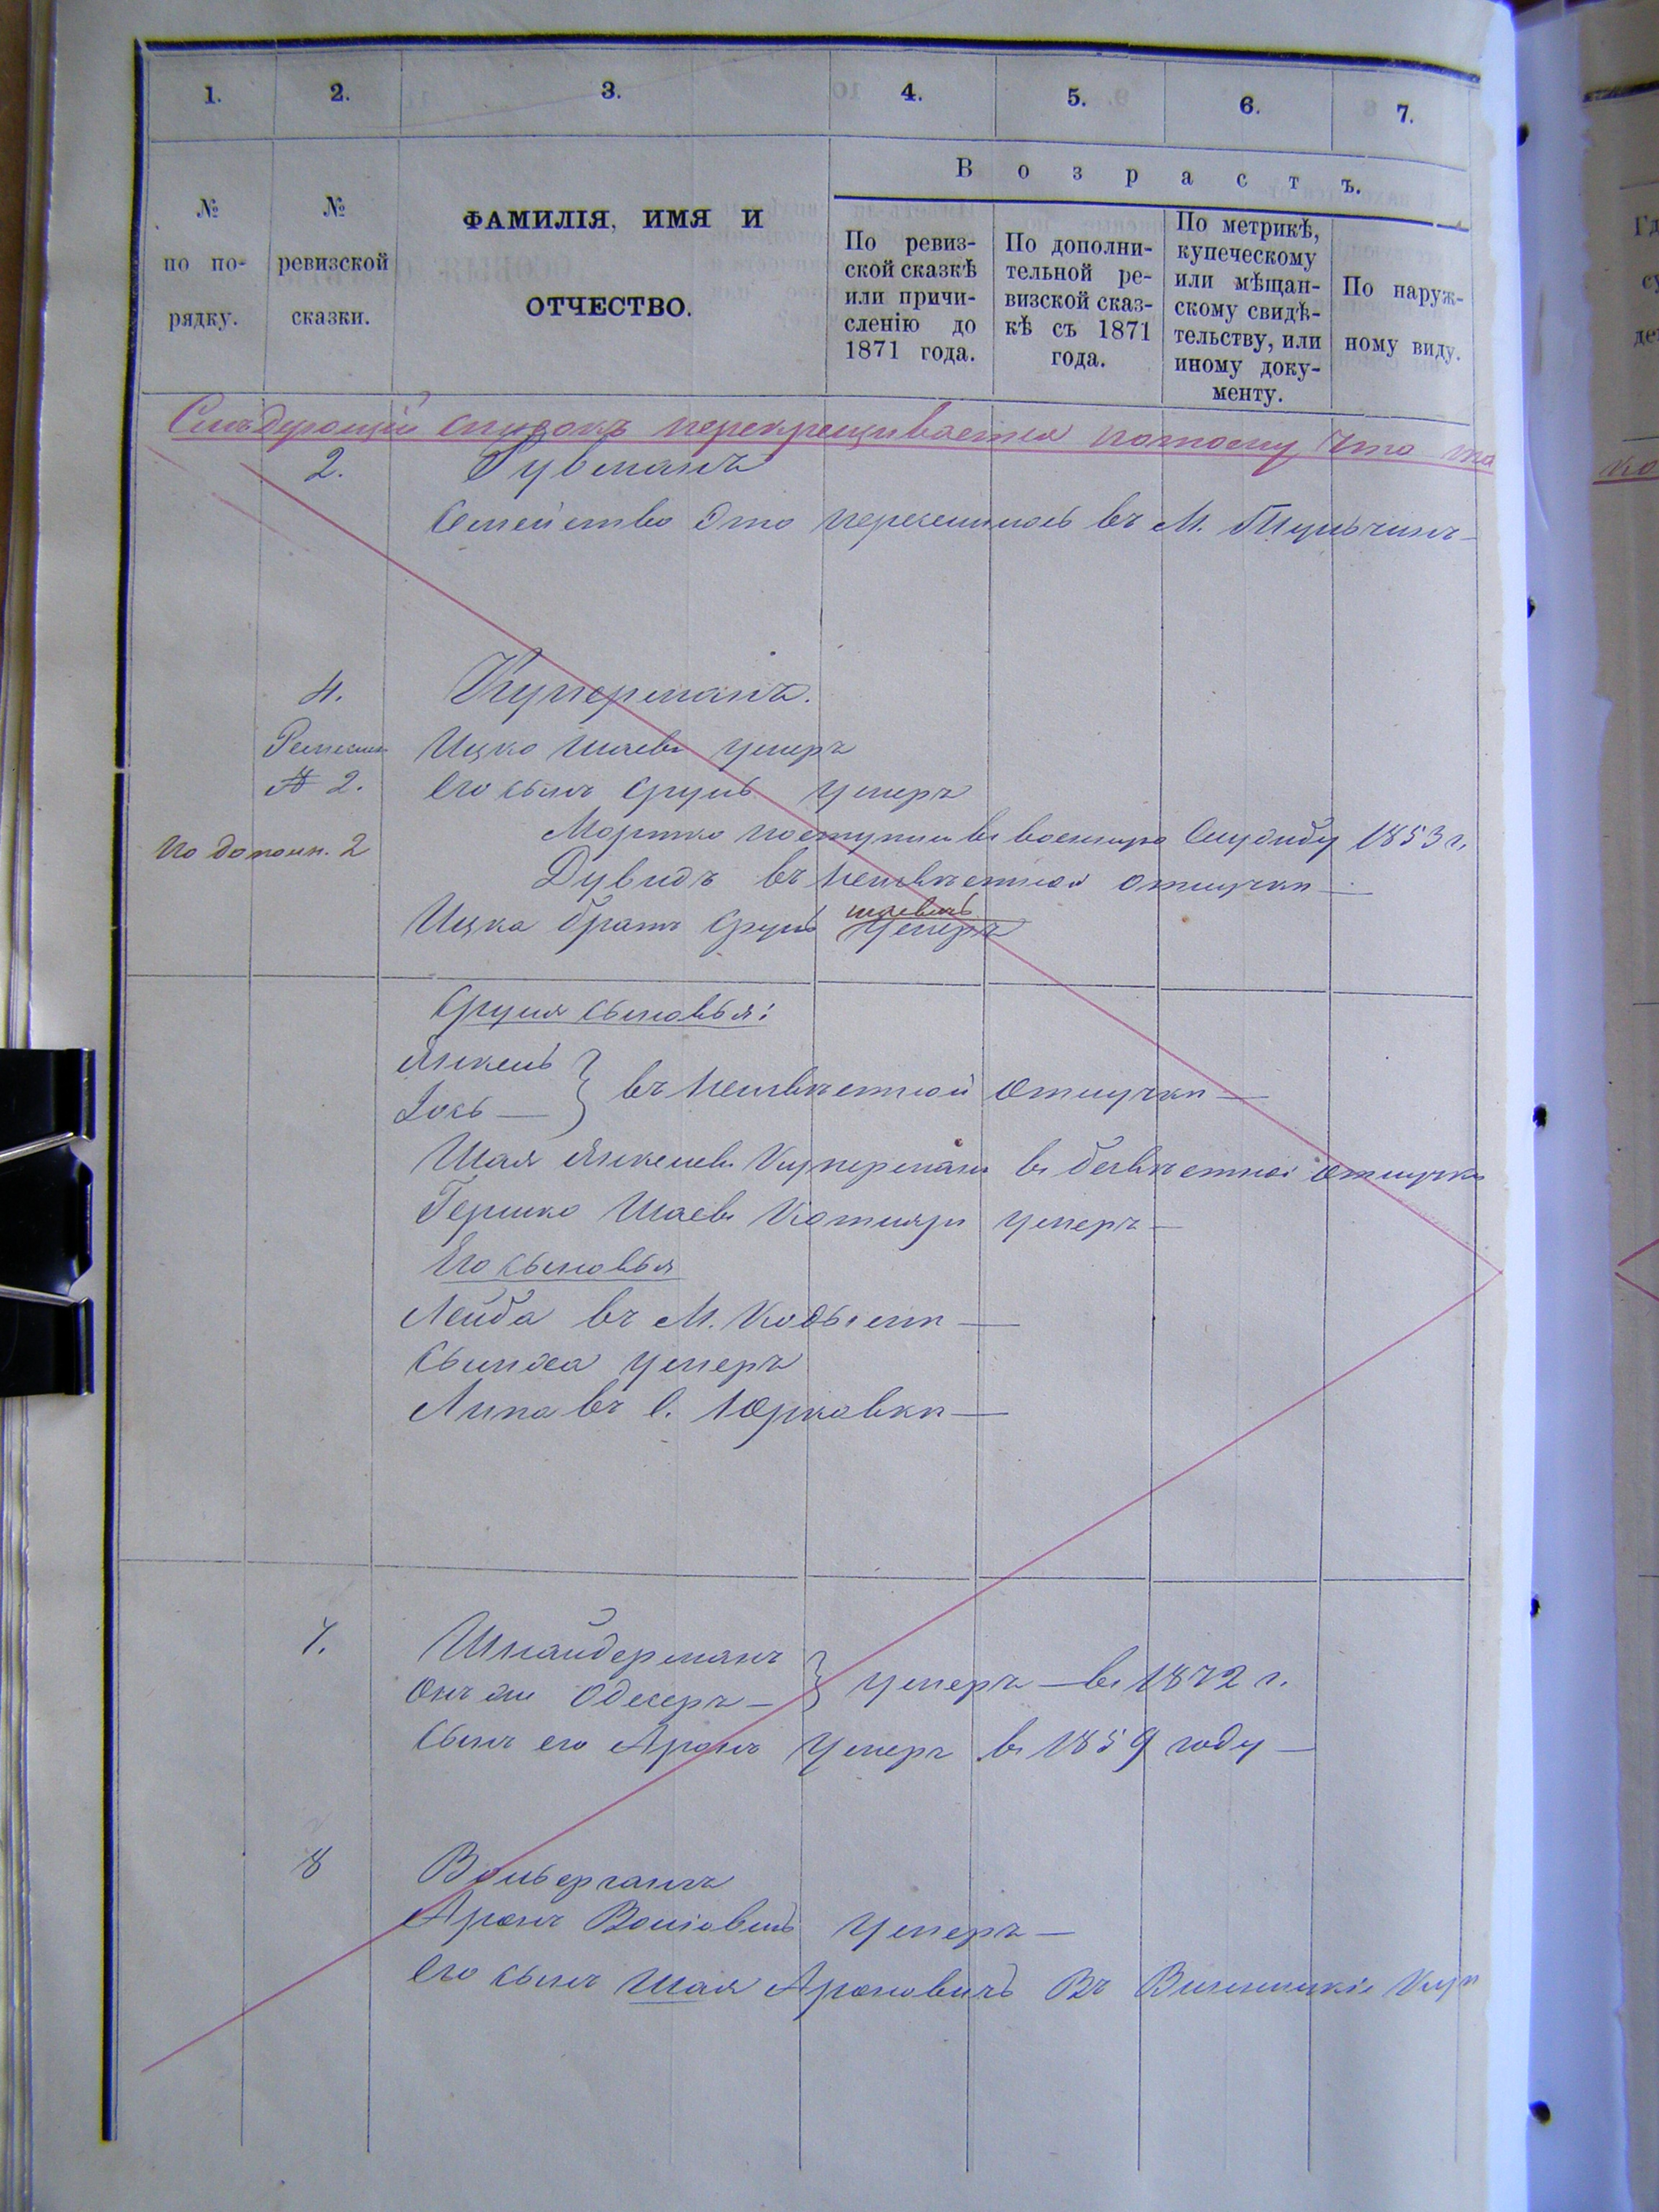 1. 2. 3. 4. 5. 6. 7.
№ по по-рядку.
№ ревизской сказки.
ФАМИЛІЯ, ИМЯ И
ОТЧЕСТВО.
Возрастъ.
По ревиз-
ской сказкѣ
или причи-
сленію до
1871 года.
По дополни-
тельной ре-
визской сказ-
кѣ съ 1871
года.
По метрикѣ,
купеческому
или мѣщан-
скому свидѣ-
тельству, или
иному доку-
менту.
По наруж-
ному виду.
Слѣдующій списокъ перекрещивается потому что
2. Гувманъ
Семейство это переселилось въ М. Тульчинъ
4. Куперманъ.
Ицко Шаевъ умеръ
№ 2. Его сынъ Сруль умеръ
Мортко поступилъ въ военную службу 1853 г.
По дополн. 2
Дувидъ въ неизвѣстной отлучкѣ —
Ицка братъ Сруль Шаевичъ умеръ
Сруля сыновья:
Янкель
Іось — } въ неизвѣстной отлучкѣ —
Шая Янкелевъ Куперманъ въ безвѣстной отлучкѣ
Гершко Шаевъ Котляръ умеръ —
Его сыновья
Лейба въ М. Кодымѣ —
Сымха умеръ
Липа въ с. Юрковкѣ —
7. Шнайдерманъ
Онъ же Одесеръ — } умеръ — въ 1872 г.
Сынъ его Аронъ умеръ въ 1859 году —
8 Вольерганъ
Аронъ Волѣовичъ умеръ —
Его сынъ Шая Ароновичъ Въ Винницкіе Куп